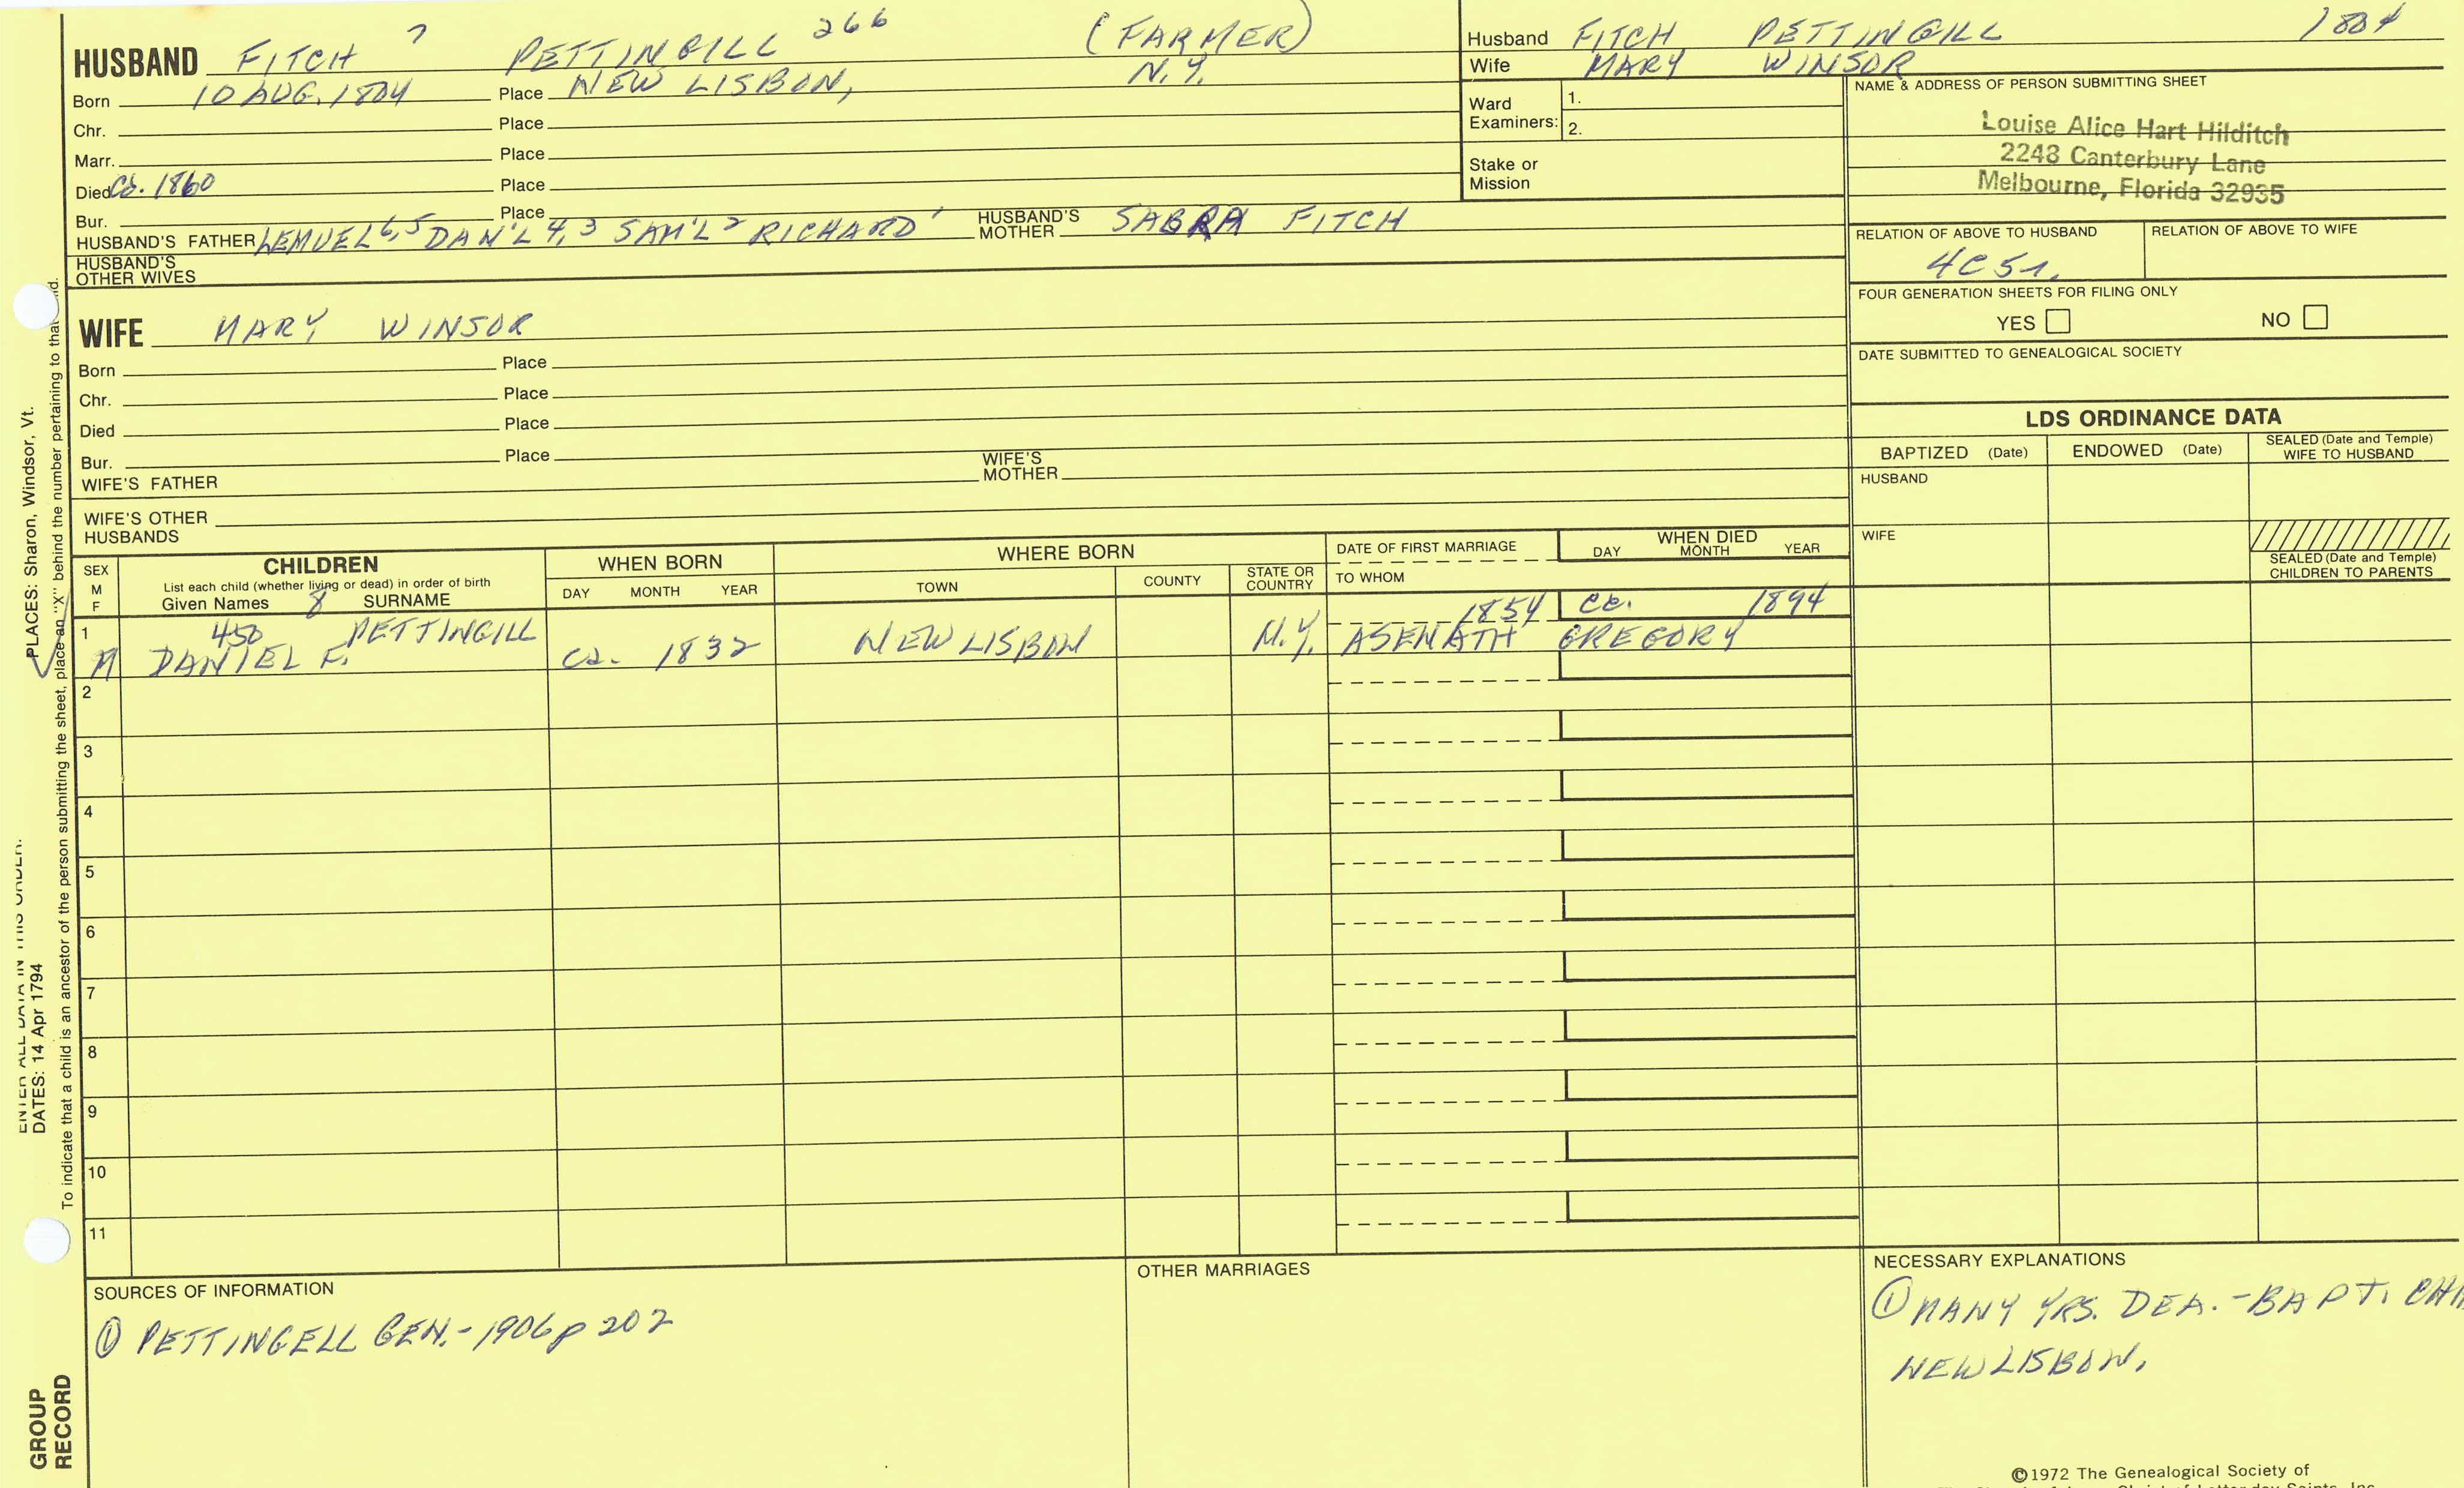 HUSBAND FITCH 7 PETTINGILL 266 (FARMER)
Born 10 AUG. 1804 Place NEW LISBON, N.Y.
Chr. Place
Marr. Place
Died Ca. 1860 Place
Bur. Place
HUSBAND'S FATHER LEMUEL 6,5 DAN'L 4,3 SAM'L 2 RICHARD 1 HUSBAND'S MOTHER SABRA FITCH
HUSBAND'S OTHER WIVES
WIFE MARY WINSOR
Born Place
Chr. Place
Died Place
Bur. Place
WIFE'S FATHER WIFE'S MOTHER
WIFE'S OTHER HUSBANDS
Husband FITCH PETTINGILL 1804
Wife MARY WINSOR
Ward Examiners: 1. 2.
Stake or Mission
NAME & ADDRESS OF PERSON SUBMITTING SHEET
Louise Alice Hart Hilditch
2248 Canterbury Lane
Melbourne, Florida 32935
RELATION OF ABOVE TO HUSBAND RELATION OF ABOVE TO WIFE
FOUR GENERATION SHEETS FOR FILING ONLY
YES NO
DATE SUBMITTED TO GENEALOGICAL SOCIETY
LDS ORDINANCE DATA
BAPTIZED (Date) ENDOWED (Date) SEALED (Date and Temple) WIFE TO HUSBAND
HUSBAND
WIFE
SEALED (Date and Temple) CHILDREN TO PARENTS
SEX M F
CHILDREN
List each child (whether living or dead) in order of birth
Given Names 8 SURNAME
WHEN BORN
DAY MONTH YEAR
WHERE BORN
TOWN COUNTY STATE OR COUNTRY
DATE OF FIRST MARRIAGE
TO WHOM
WHEN DIED
DAY MONTH YEAR
1 450 PETTINGILL 1854 ca. 1894
M DANIEL F. ca. 1832 NEW LISBON N.Y. ASENATH GREGORY
2
3
4
5
6
7
8
9
10
11
SOURCES OF INFORMATION
① PETTINGELL GEN.-1906 p 202
OTHER MARRIAGES
NECESSARY EXPLANATIONS
① MANY YRS. DEA. - BAPT.
NEW LISBON.
©1972 The Genealogical Society of
PLACES: Sharon, Windsor, Vt.
ENTER ALL DATA IN THIS ORDER:
DATES: 14 Apr 1794
To indicate that a child is an ancestor of the person submitting the sheet, place an "X" behind the number pertaining to that
GROUP
RECORD